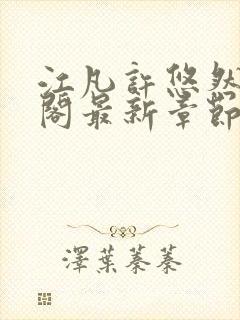 江凡許悠然
閣最新章節
澤葉蓁蓁